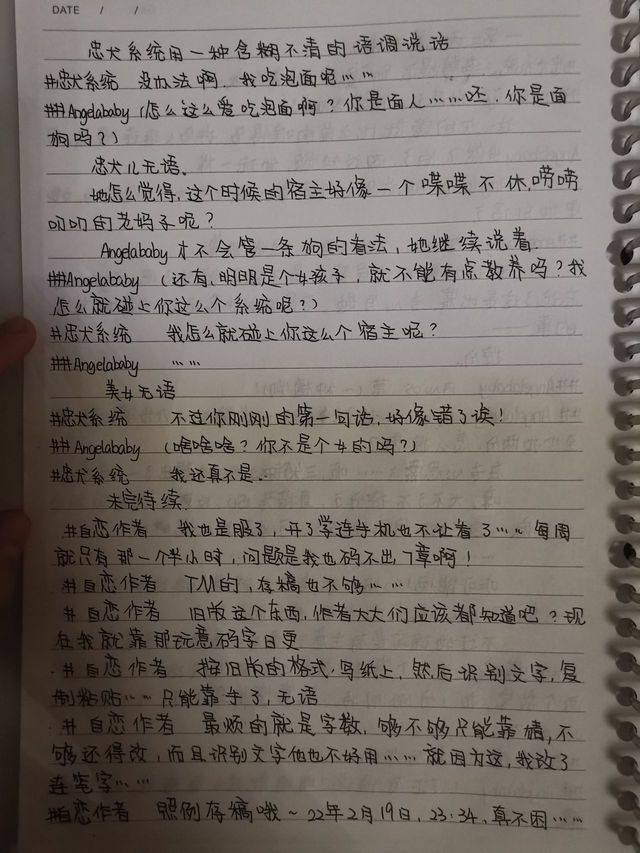 DATE / /
忠犬系统用一种含糊不清的语调说话
#忠犬系统 没办法啊，我吃泡面呢……
##Angelababy（怎么这么爱吃泡面啊？你是面人……呸，你是面
狗吗？）
忠犬儿无语。
她怎么觉得，这个时候的宿主好像一个喋喋不休，唠唠
叨叨的老妈子呢？
Angelababy才不会管一条狗的看法，她继续说着。
##Angelababy（还有，明明是个女孩子，就不能有点教养吗？我
怎么就碰上你这么个系统呢？）
#忠犬系统 我怎么就碰上你这么个宿主呢？
##Angelababy ……
美女无语
#忠犬系统 不过你刚刚的第一句话，好像错了诶！
##Angelababy （啥啥啥？你不是个女的吗？）
#忠犬系统 我还真不是。
未完待续.
#自恋作者 我也是服了，开了学连手机也不让看了……每周
就只有那一个半小时，问题是我也码不出7章啊！
#自恋作者 TM的，存稿也不够……
#自恋作者 旧版这个东西，作者大大们应该都知道吧？现
在我就靠那玩意码字日更
#自恋作者 按旧版的格式，写纸上，然后识别文字，复
制粘贴……只能靠手了，无语
#自恋作者 最烦的就是字数，够不够只能靠猜，不
够还得改，而且识别文字他也不好用……就因为这，我改了
连笔字……
#自恋作者 照例存稿哦～22年2月19日，23:34，真不困……